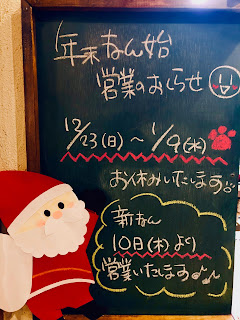 年末ねん始
営業のおしらせ
12/23(日)～1/9(水)
お休みいたします
新ねん
10日(木)より
営業いたします♪